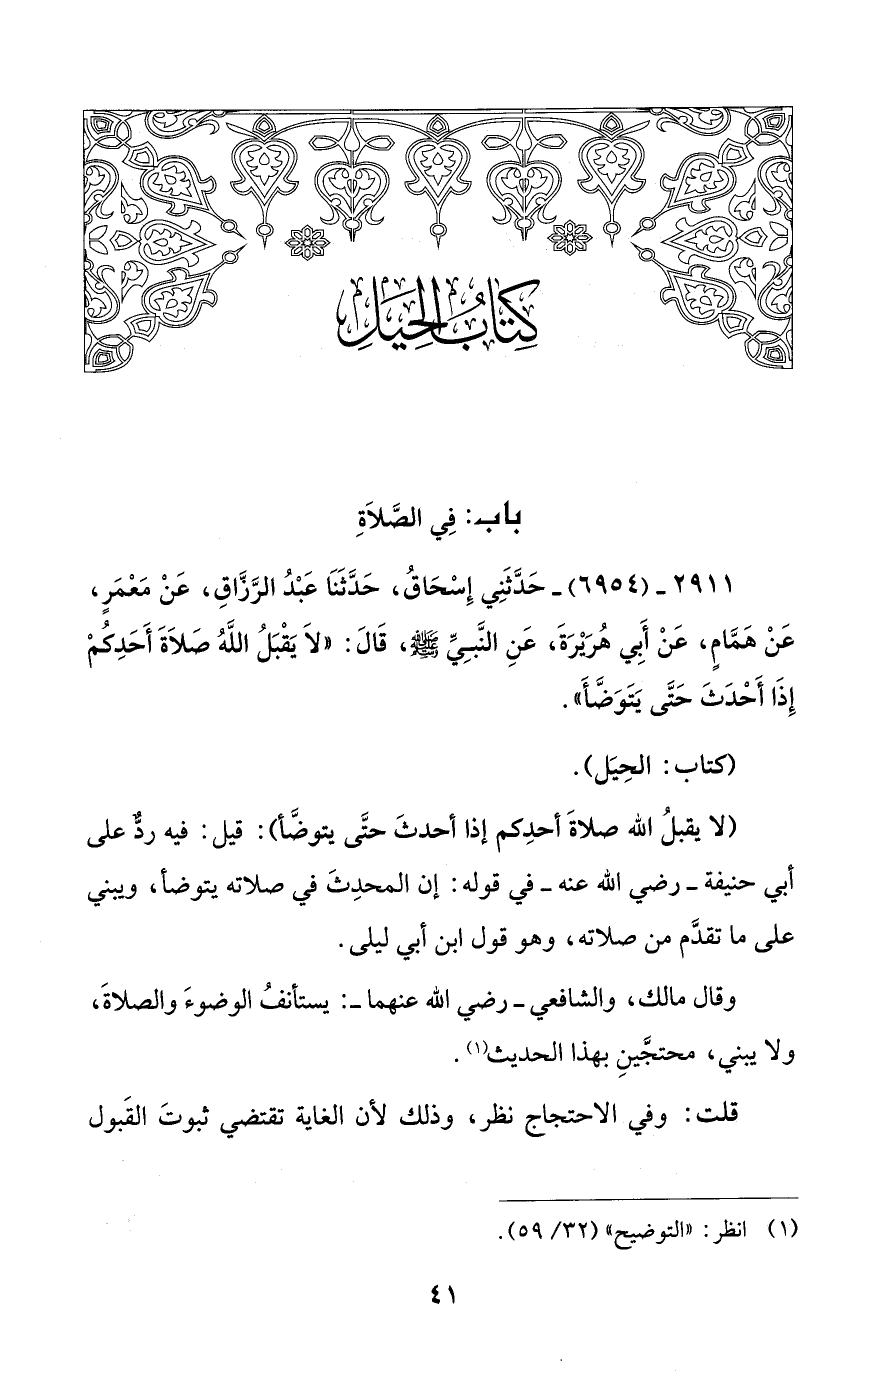 كِتَابُ الْحِيَلِ
باب: فِي الصَّلاَةِ
٢٩١١ ـ (٦٩٥٤) ـ حَدَّثَنِي إِسْحَاقُ، حَدَّثَنَا عَبْدُ الرَّزَّاقِ، عَنْ مَعْمَرٍ،
عَنْ هَمَّامٍ، عَنْ أَبِي هُرَيْرَةَ، عَنِ النَّبِيِّ ﷺ، قَالَ: «لاَ يَقْبَلُ اللَّهُ صَلاَةَ أَحَدِكُمْ
إِذَا أَحْدَثَ حَتَّى يَتَوَضَّأَ».
(كتاب: الحِيَل).
(لا يقبلُ الله صلاةَ أحدِكم إذا أحدثَ حتَّى يتوضَّأ): قيل: فيه ردٌّ على
أبي حنيفة ـ رضي الله عنه ـ في قوله: إن المحدِثَ في صلاته يتوضأ، ويبني
على ما تقدَّم من صلاته، وهو قول ابن أبي ليلى.
وقال مالك، والشافعي ـ رضي الله عنهما ـ: يستأنفُ الوضوءَ والصلاةَ،
ولا يبني، محتجَّينِ بهذا الحديث(١).
قلت: وفي الاحتجاج نظر، وذلك لأن الغاية تقتضي ثبوتَ القَبول
(١) انظر: «التوضيح» (٣٢/ ٥٩).
٤١